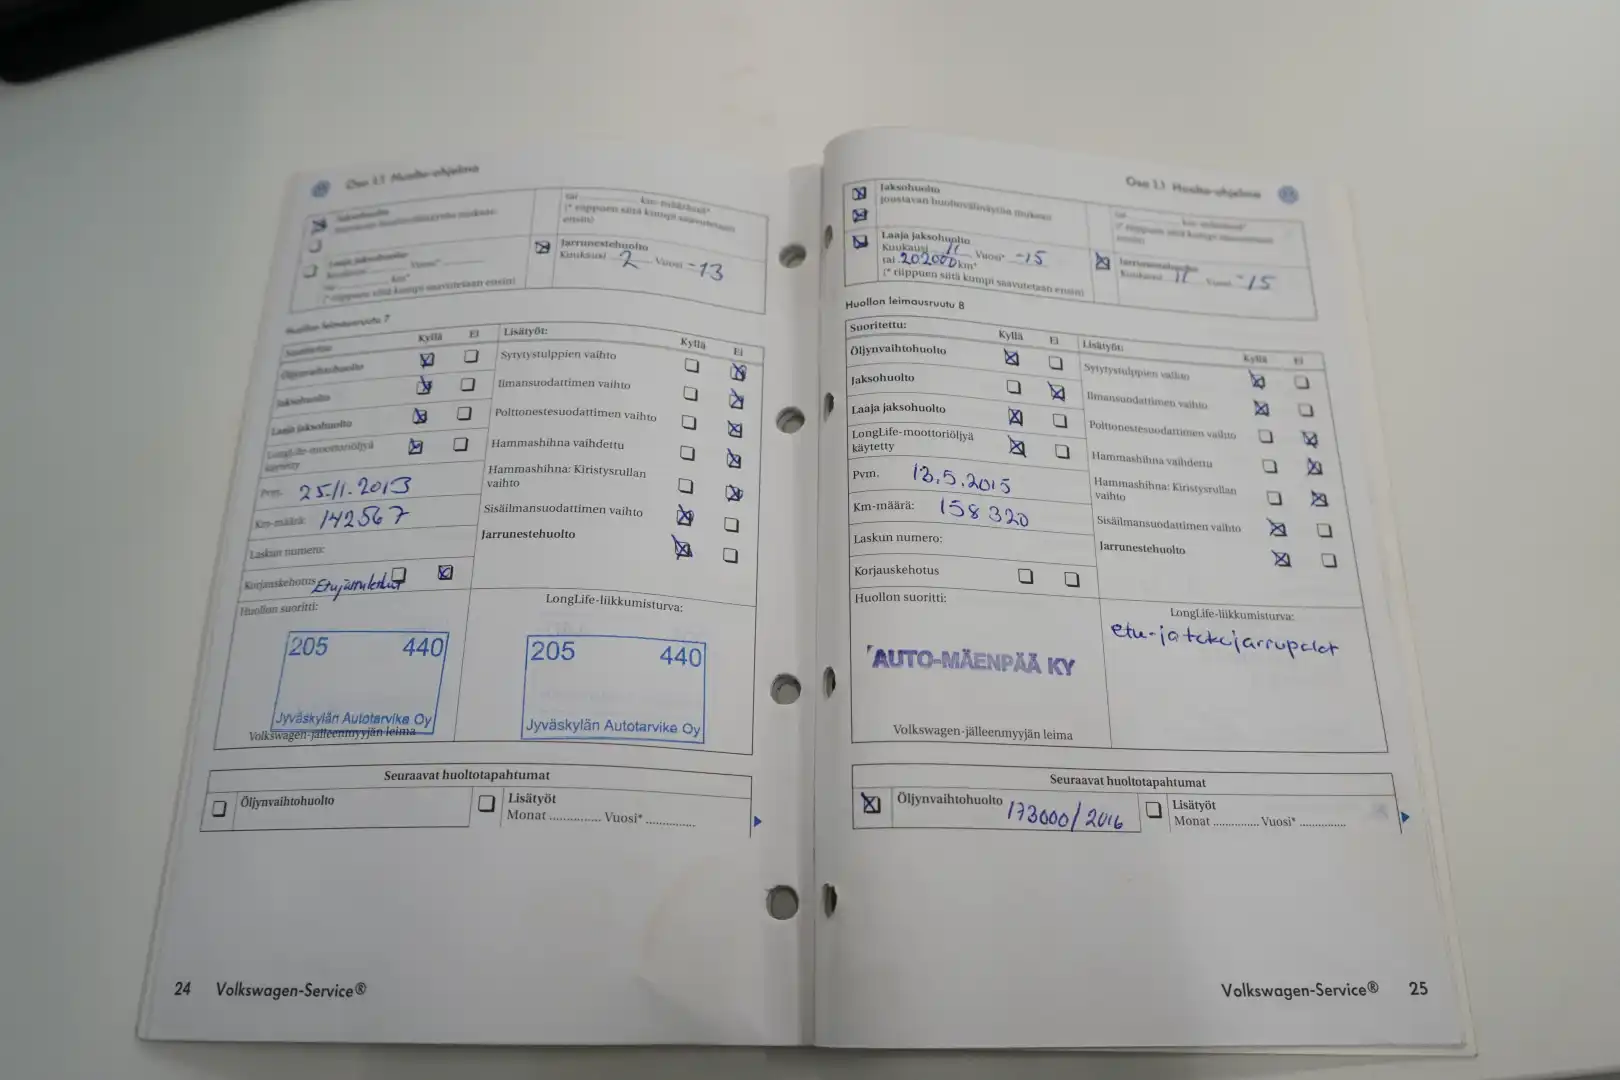 Osa 1.1 Huolto-ohjelma
Jaksohuolto
tai ............ km-määrässä*
(* riippuen siitä kumpi saavutetaan
ensin)
Laaja jaksohuolto
Kuukausi ............ Vuosi* ............
tai ............ km*
(* riippuen siitä kumpi saavutetaan ensin)
Jarrunestehuolto
Kuukausi 2 Vuosi -13
Huollon leimausruutu 7
Suoritettu: Kyllä Ei
Öljynvaihtohuolto
Jaksohuolto
Laaja jaksohuolto
LongLife-moottoriöljyä
käytetty
Pvm. 25.11.2013
Km-määrä: 142567
Laskun numero:
Korjauskehotus
Lisätyöt: Kyllä Ei
Sytytystulppien vaihto
Ilmansuodattimen vaihto
Polttonestesuodattimen vaihto
Hammashihna vaihdettu
Hammashihna: Kiristysrullan
vaihto
Sisäilmansuodattimen vaihto
Jarrunestehuolto
Huollon suoritti:
205 440
Jyväskylän Autotarvike Oy
Volkswagen-jälleenmyyjän leima
LongLife-liikkumisturva:
205 440
Jyväskylän Autotarvike Oy
Seuraavat huoltotapahtumat
Öljynvaihtohuolto
Lisätyöt
Monat ............... Vuosi* ...............
24 Volkswagen-Service®
Osa 1.1 Huolto-ohjelma
Jaksohuolto
joustavan huoltovälinäytön mukaan
Laaja jaksohuolto
Kuukausi 11 Vuosi* -15
tai 202000 km*
(* riippuen siitä kumpi saavutetaan ensin)
Jarrunestehuolto
Kuukausi 11 Vuosi -15
Huollon leimausruutu 8
Suoritettu: Kyllä Ei
Öljynvaihtohuolto
Jaksohuolto
Laaja jaksohuolto
LongLife-moottoriöljyä
käytetty
Pvm. 13.5.2015
Km-määrä: 158320
Laskun numero:
Korjauskehotus
Lisätyöt: Kyllä Ei
Sytytystulppien vaihto
Ilmansuodattimen vaihto
Polttonestesuodattimen vaihto
Hammashihna vaihdettu
Hammashihna: Kiristysrullan
vaihto
Sisäilmansuodattimen vaihto
Jarrunestehuolto
Huollon suoritti:
AUTO-MÄENPÄÄ KY
Volkswagen-jälleenmyyjän leima
LongLife-liikkumisturva:
etu- ja takajarrupalat
Seuraavat huoltotapahtumat
Öljynvaihtohuolto 173000/2016
Lisätyöt
Monat ............... Vuosi* ...............
Volkswagen-Service® 25